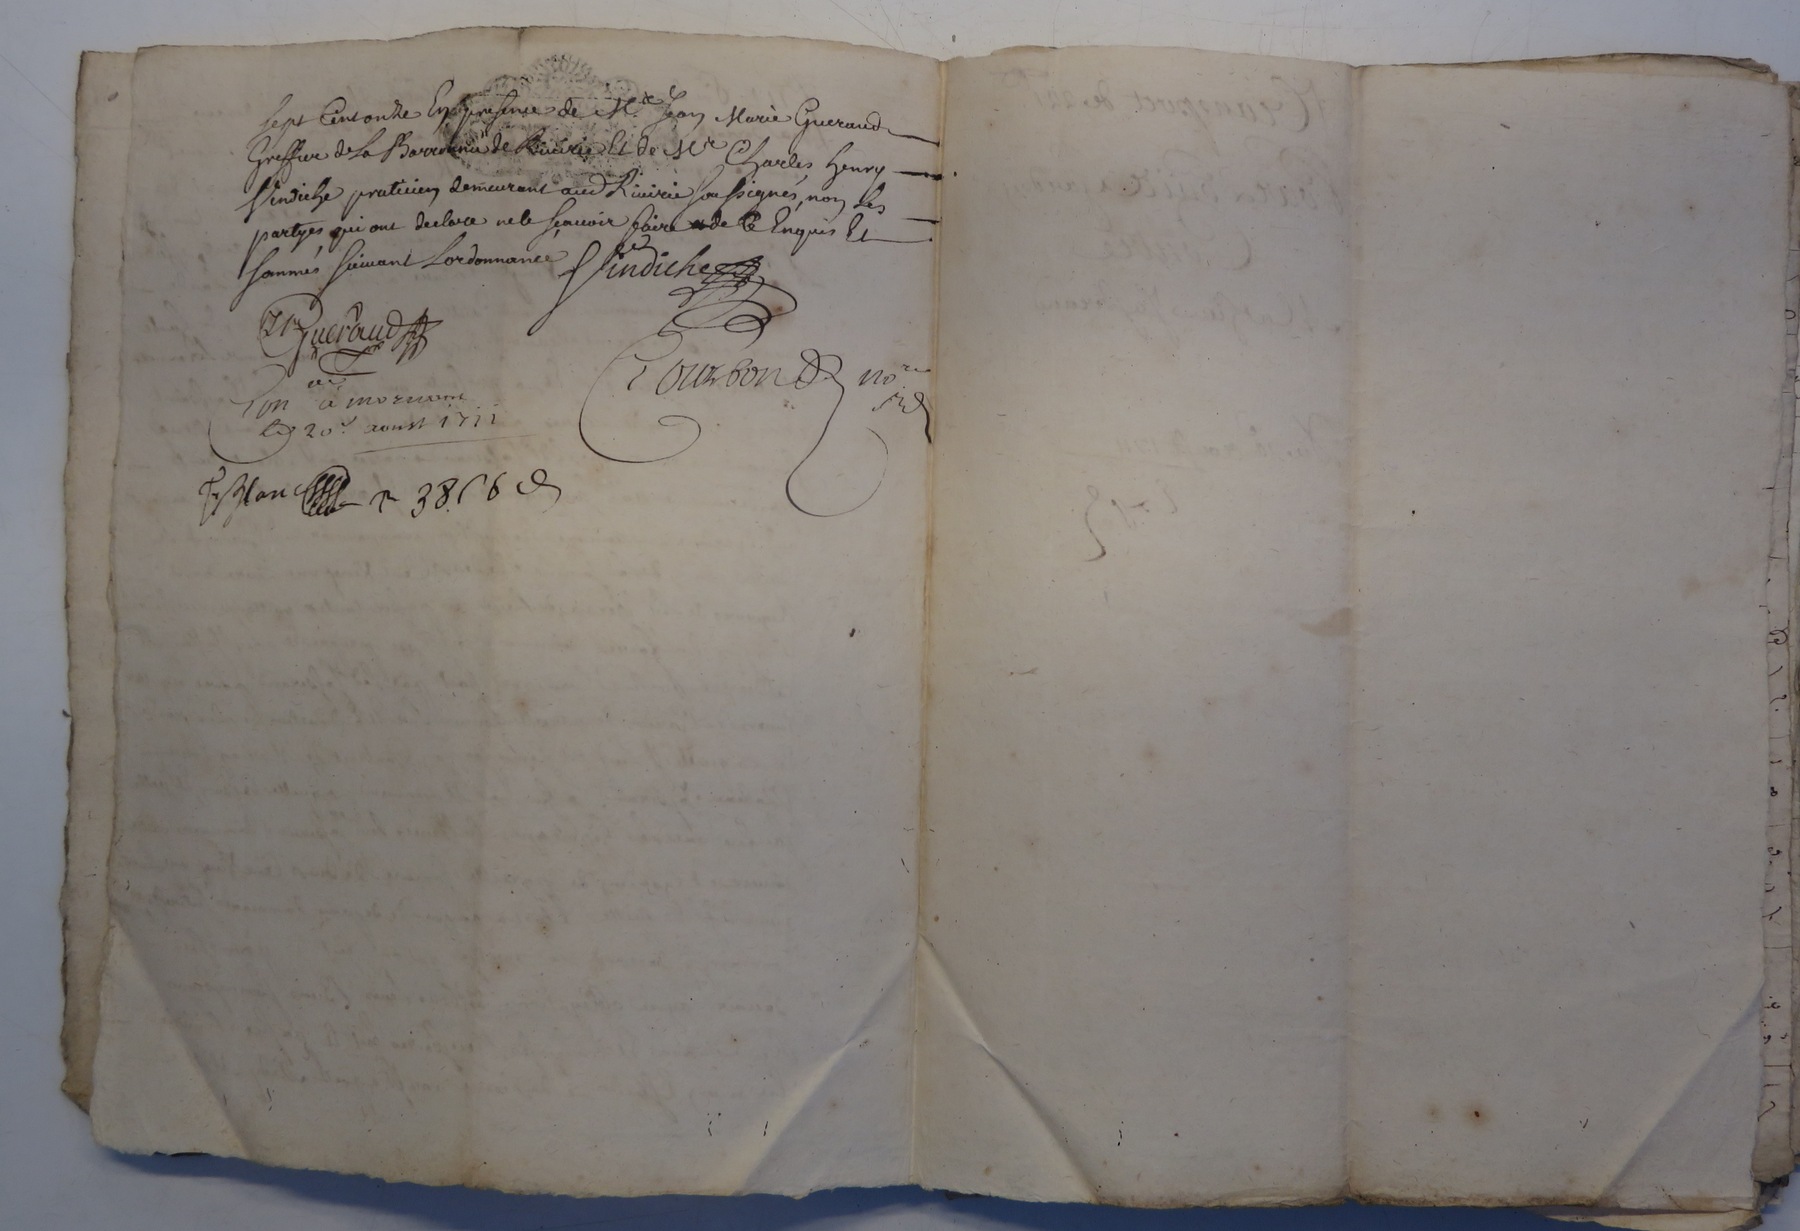 sept Cent onze En presence de Mre Jean Marie Gueraud
Greffier de La Baronnie de Riuirie Et de Mr Charles henry
Sindiche praticien demeurant aud Riuirie soussignés, non Les
partyes qui ont declare ne le sçauoir faire de ce Enquis Et
sommés suiuant Lordonnance Sindiche
Gueraud
Courbon nore
Con a mornant
le 20e aoust 1711